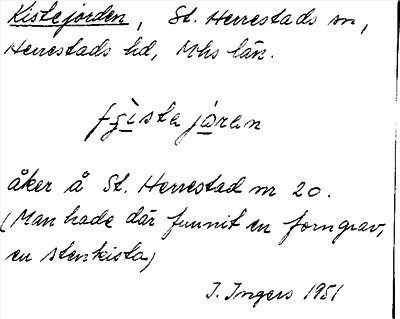 Kistejorden, St. Herrestads sn,
Herrestads hd, Mhs län.
åker å St. Herrestad nr 20.
(Man hade där funnit en forngrav,
en stenkista)
I. Ingers 1951